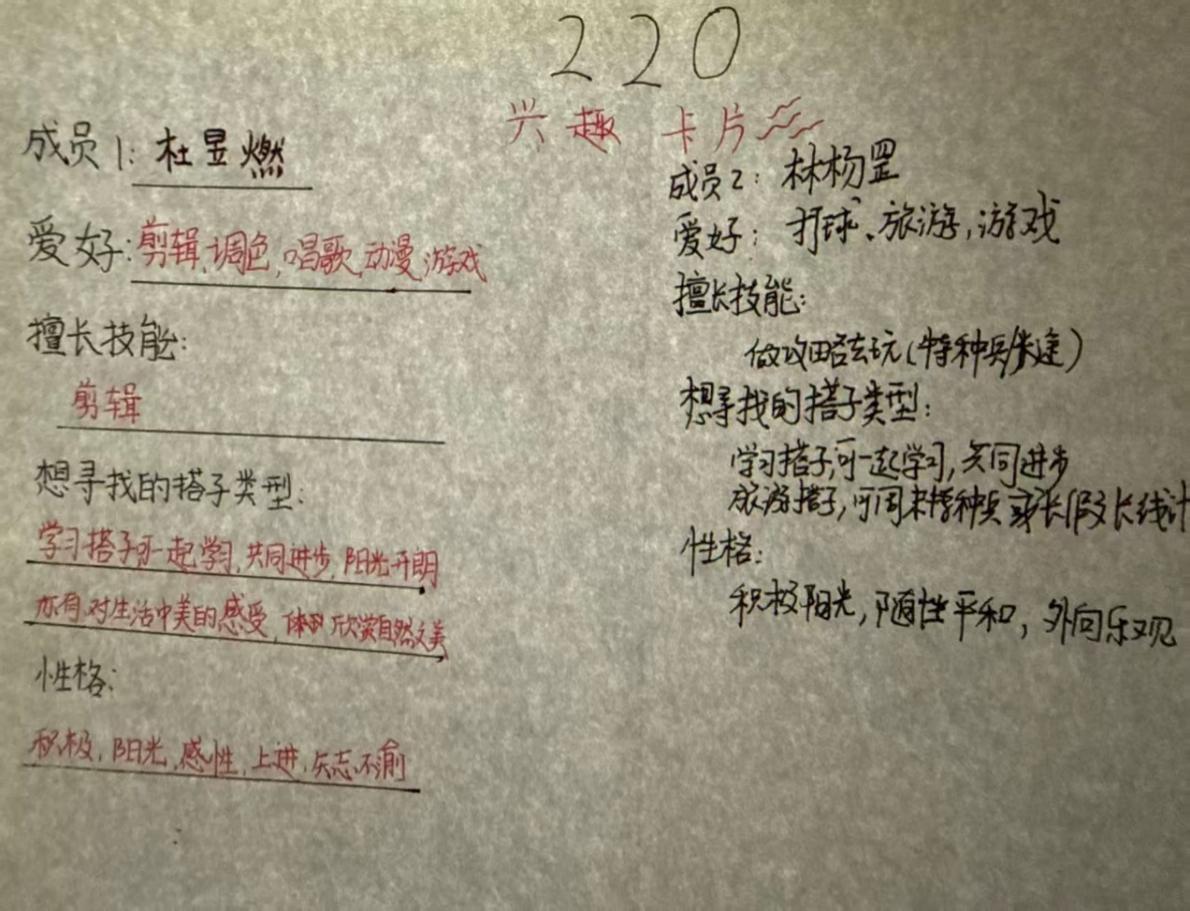 220
兴趣卡片
成员1: 杜昱燃
爱好: 剪辑,调色,唱歌,动漫,游戏
擅长技能:
剪辑
想寻找的搭子类型:
学习搭子可一起学习,共同进步,阳光开朗
亦有对生活中美的感受,体现欣赏自然之美
性格:
积极,阳光,感性,上进,矢志不渝
成员2: 林杨罡
爱好: 打球、旅游,游戏
擅长技能:
做攻略去玩(特种兵/朱途)
想寻找的搭子类型:
学习搭子,可一起学习,共同进步
旅游搭子,可周末特种兵或长假长线计
性格:
积极阳光,随性平和,外向乐观